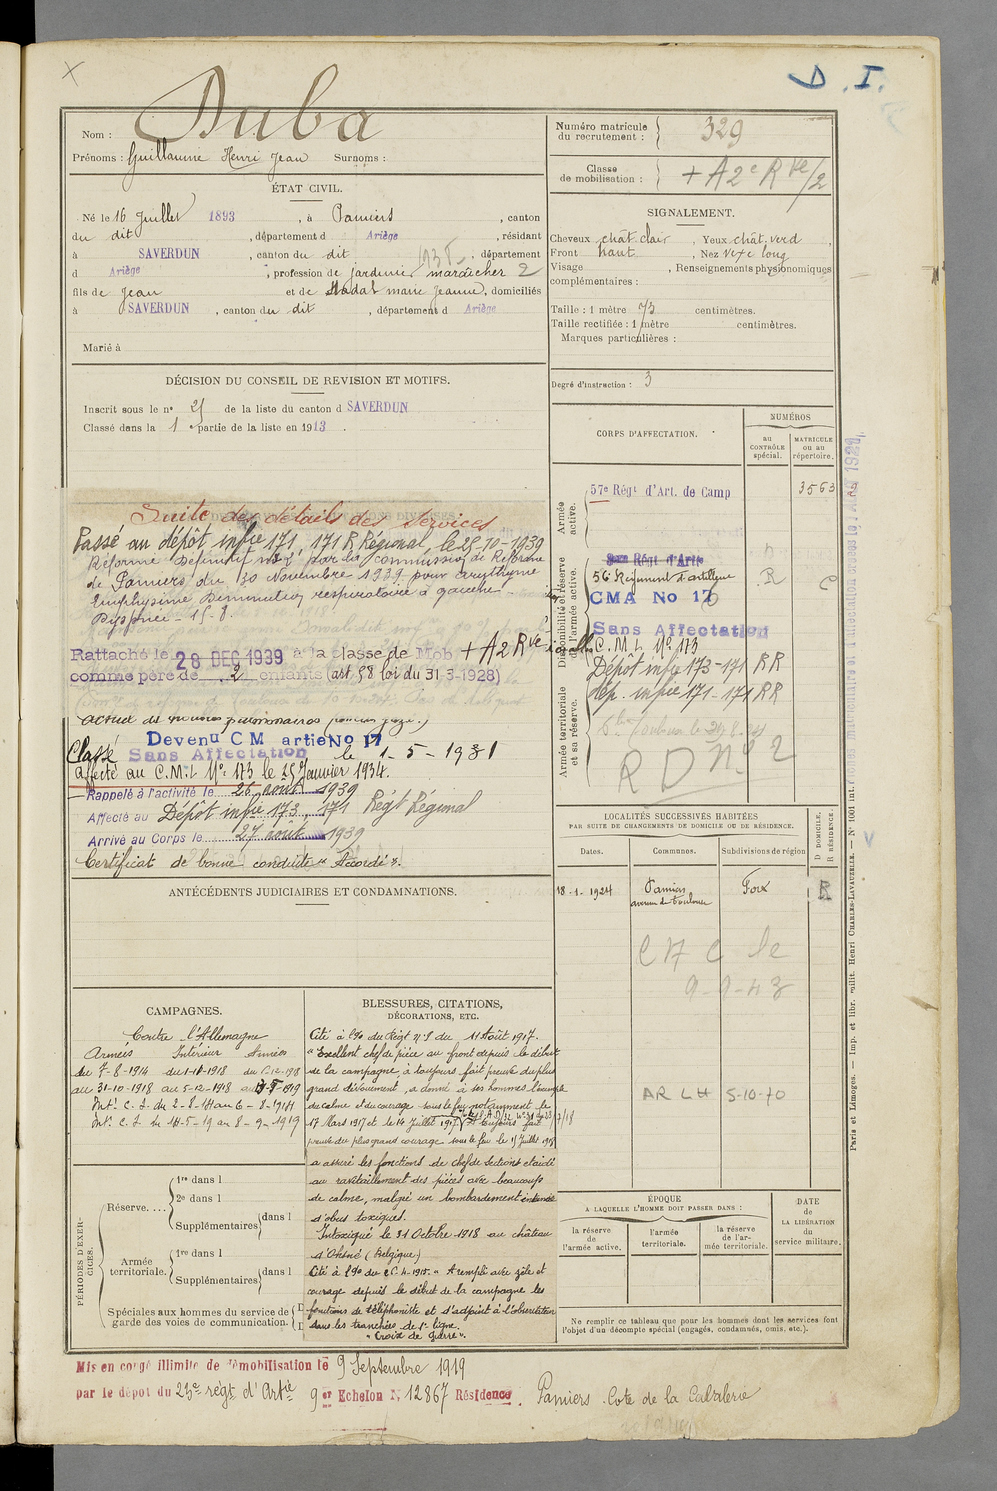 X
D. I.
Nom : Duba
Prénoms : Guillaume Henri Jean Surnoms :
Numéro matricule du recrutement : 329
Classe de mobilisation : + A 2e R ve/2
ÉTAT CIVIL.
Né le 16 Juillet 1893, à Pamiers, canton
du dit, département d Ariège, résidant
à SAVERDUN, canton du dit, département
d Ariège, profession de jardinier maraîcher 2
fils de Jean et de Nadal marie jeanne, domiciliés
à SAVERDUN, canton du dit, département d Ariège
Marié à
SIGNALEMENT.
Cheveux chât clair, Yeux chât. verd,
Front haut, Nez long
Visage , Renseignements physionomiques
complémentaires :
Taille : 1 mètre 73 centimètres.
Taille rectifiée : 1 mètre centimètres.
Marques particulières :
Degré d'instruction : 3
DÉCISION DU CONSEIL DE REVISION ET MOTIFS.
Inscrit sous le no 25 de la liste du canton d SAVERDUN
Classé dans la 1 e partie de la liste en 1913.
Suite des détails des services
Passé au dépôt infie 171, 171 R Régional, le 25-10-1939
Réforme Définitif no 2 par la commission de Réforme
de Pamiers du 30 Novembre 1939 pour
Emphysème Diminution respiratoire à gauche
Dyspnée - 15-8.
Rattaché le 28 DEC 1939 à la classe de Mob + A 2 R ve
comme père de 2 enfants (art 58 loi du 31-3-1928)
Devenu C M artie No 17
Classé Sans Affectation le 1-5-1931
affecté au C.M.I. No 173 le 25 Janvier 1934.
Rappelé à l'activité le 26 août 1939
Affecté au Dépôt infie 173, 171 Régt Régional
Arrivé au Corps le 27 août 1939
Certificat de bonne conduite "Accordé".
CORPS D'AFFECTATION.
NUMÉROS
au CONTRÔLE spécial.
MATRICULE ou au répertoire.
Armée active.
57e Régt d'Art. de Camp 3563
Disponibilité et réserve de l'armée active.
56 Régiment d'artillerie R C
CMA No 17
Sans Affectation
C. M. I. No 173
Dépôt infie 173-171 RR
Dép. infie 171-171 RR
Armée territoriale et sa réserve.
R D no 2
LOCALITÉS SUCCESSIVES HABITÉES
PAR SUITE DE CHANGEMENTS DE DOMICILE OU DE RÉSIDENCE.
D DOMICILE. R RÉSIDENCE.
Dates. Communes. Subdivisions de région
18-1-1924 Pamiers avenue de Toulouse Foix R
C N C le
9-9-43
AR LH 5-10-70
ANTÉCÉDENTS JUDICIAIRES ET CONDAMNATIONS.
CAMPAGNES.
Contre l'Allemagne
Armées Intérieur Armées
du 7-8-1914 du 1-11-1918 du 6-12-1918
au 31-10-1918 au 5-12-1918 au 1919
Int. C. S. du 2-8-14 au 6-8-1914
Int. C. S. du 14-5-19 au 8-9-1919
BLESSURES, CITATIONS,
DÉCORATIONS, ETC.
Cité à l'Oo du Régt no 9 du 11 Août 1917.
"Excellent chef de pièce au front depuis le début
de la campagne, a toujours fait preuve du plus
grand dévouement, a donné à ses hommes l'exemple
du calme et du courage sous le feu notamment le
17 Mars 1917 et le 14 Juillet 1917
preuve du plus grand courage sous le feu le 15 Juillet 1918
a assuré les fonctions de chef de section et aidé
au ravitaillement des pièces avec beaucoup
de calme, malgré un bombardement intense
d'obus toxiques.
Intoxiqué le 31 Octobre 1918 au château
(Belgique)
"A rempli avec zèle et
courage depuis le début de la campagne les
fonctions de téléphoniste et d'adjoint à l'observateur
dans les tranchées de 1e ligne.
"Croix de guerre".
PÉRIODES D'EXERCICES.
Réserve.... 1re dans l
2e dans l
Supplémentaires dans l
Armée territoriale. 1re dans l
Supplémentaires dans l
Spéciales aux hommes du service de
garde des voies de communication.
ÉPOQUE
A LAQUELLE L'HOMME DOIT PASSER DANS :
la réserve de l'armée active.
l'armée territoriale.
la réserve de l'armée territoriale.
DATE DE LA LIBÉRATION du service militaire.
Ne remplir ce tableau que pour les hommes dont les services font
l'objet d'un décompte spécial (engagés, condamnés, omis, etc.).
Paris et Limoges. — Imp. et libr. milit. Henri CHARLES-LAVAUZELLE. — No 1001 int.
Mis en congé illimité de démobilisation le 9 Septembre 1919
par le dépot du 23e régt d'Artie 9 er Echelon N 12867 Résidence. Pamiers Cote de la Cavalerie